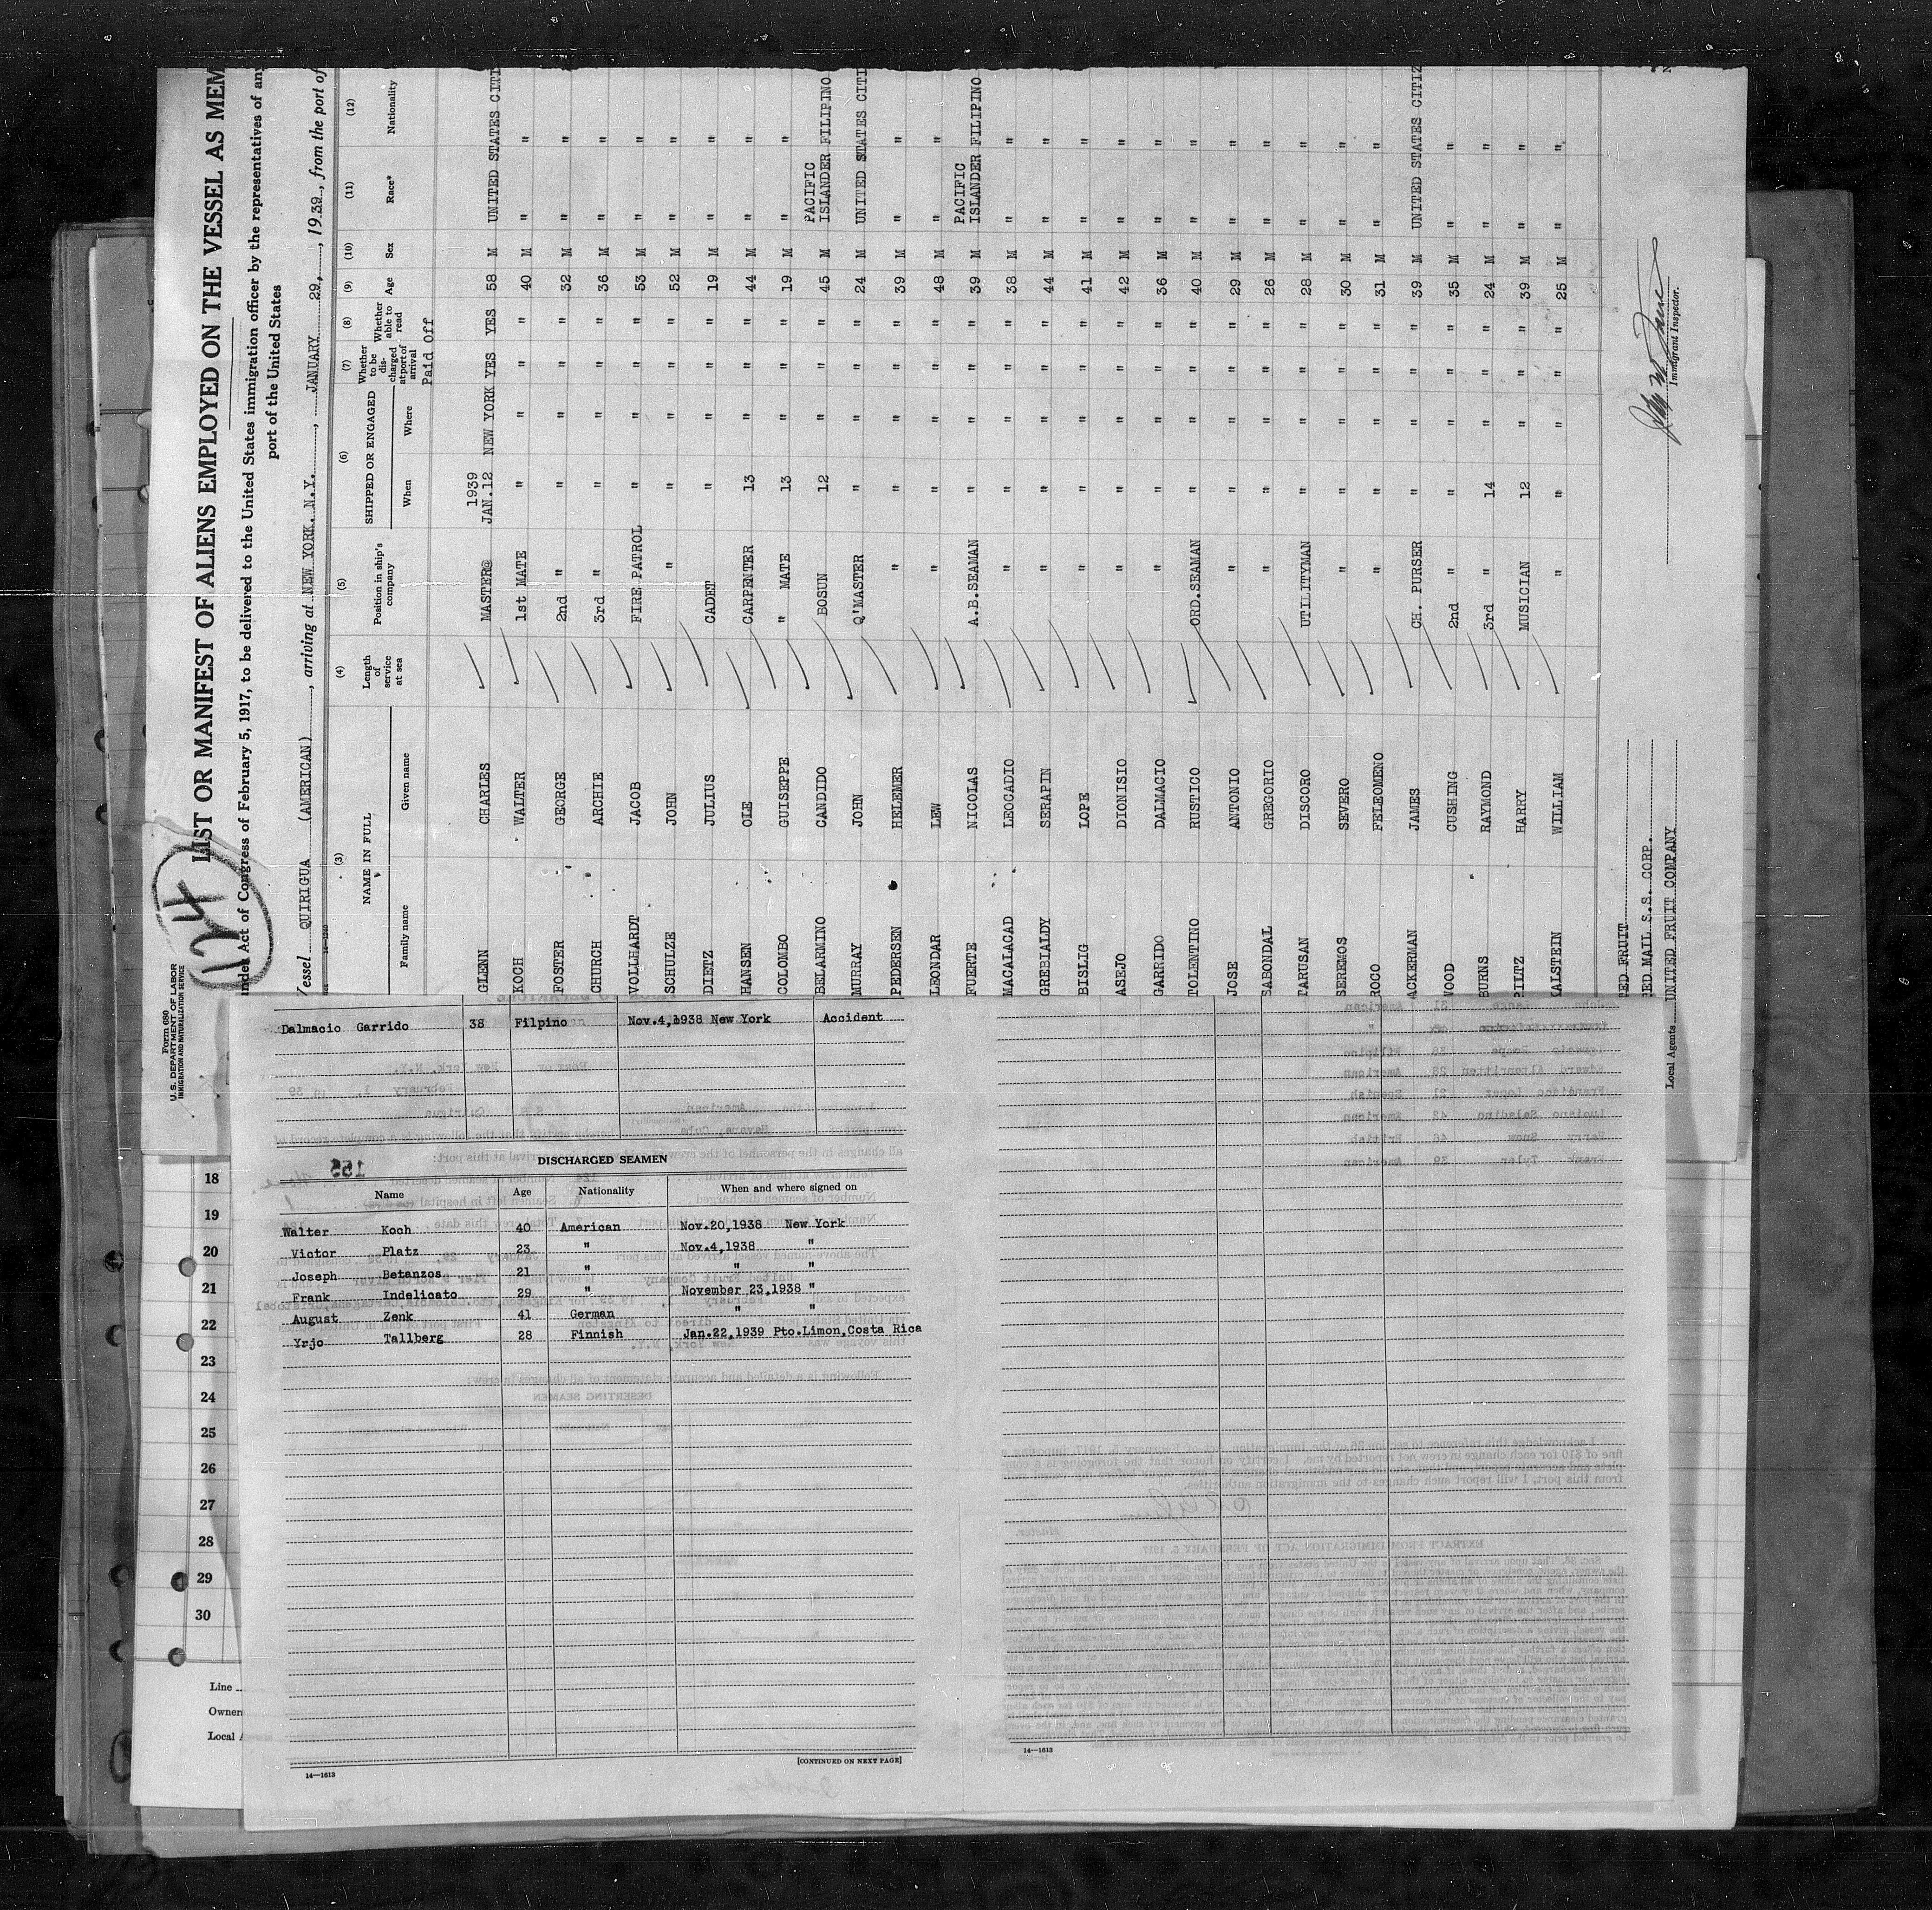 Form 680
U. S. DEPARTMENT OF LABOR
IMMIGRATION AND NATURALIZATION SERVICE
124
LIST OR MANIFEST OF ALIENS EMPLOYED ON THE VESSEL AS MEM
under Act of Congress of February 5, 1917, to be delivered to the United States immigration officer by the representatives of any
port of the United States
Vessel QUIRIGUA (AMERICAN), arriving at NEW YORK. N.Y., JANUARY 29, 1939, from the port of
(3) (4) (5) (6) (7) (8) (9) (10) (11) (12)
NAME IN FULL
Family name Given name
Length of service at sea
Position in ship's company
SHIPPED OR ENGAGED
When Where
Whether to be discharged at port of arrival
Paid Off
Whether able to read
Age Sex Race* Nationality
1939
GLENN CHARLES MASTER@ JAN.12 NEW YORK YES YES 58 M UNITED STATES CITI
KOCH WALTER 1st MATE " " " " 40 M " "
FOSTER GEORGE 2nd " " " " " 32 M " "
CHURCH ARCHIE 3rd " " " " " 36 M " "
VOLLHARDT JACOB FIRE PATROL " " " " 53 M " "
SCHULZE JOHN " " " " " 52 M " "
DIETZ JULIUS CADET " " " " 19 M " "
HANSEN OLE CARPENTER 13 " " " 44 M " "
COLOMBO GUISEPPE " MATE 13 " " " 19 M " "
BELARMINO CANDIDO BOSUN 12 " " " 45 M PACIFIC ISLANDER FILIPINO
MURRAY JOHN Q'MASTER " " " " 24 M UNITED STATES CITI
PEDERSEN HELEMER " " " " " 39 M " "
LEONDAR LEW " " " " " 48 M " "
FUERTE NICOLAS A.B.SEAMAN " " " " 39 M PACIFIC ISLANDER FILIPINO
MACALACAD LEOCADIO " " " " " 38 M " "
GREBIALDY SERAPIN " " " " " 44 M " "
BISLIG LOPE " " " " " 41 M " "
ASEJO DIONISIO " " " " " 42 M " "
GARRIDO DALMACIO " " " " " 36 M " "
TOLENTINO RUSTICO ORD.SEAMAN " " " " 40 M " "
JOSE ANTONIO " " " " " 29 M " "
SABONDAL GREGORIO " " " " " 26 M " "
TARUSAN DISCORO UTILITYMAN " " " " 28 M " "
SEREMOS SEVERO " " " " " 30 M " "
ROCO FELEOMENO " " " " " 31 M " "
ACKERMAN JAMES CH. PURSER " " " " 39 M UNITED STATES CITIZ
WOOD CUSHING 2nd " " " " " 35 M " "
BURNS RAYMOND 3rd " 14 " " " 24 M " "
PILTZ HARRY MUSICIAN 12 " " " 39 M " "
KALSTEIN WILLIAM " " " " " 25 M " "
TED FRUIT
TED MAIL S.S. CORP.
Local Agents UNITED FRUIT COMPANY
Immigrant Inspector.
Dalmacio Garrido 38 Filpino Nov.4,1938 New York Accident
DISCHARGED SEAMEN
155
Name Age Nationality When and where signed on
Walter Koch 40 American Nov.20,1938 New York
Victor Platz 23 " Nov.4,1938 "
Joseph Betanzos 21 " " "
Frank Indelicato 29 " November 23,1938 "
August Zenk 41 German " "
Yrjo Tallberg 28 Finnish Jan.22,1939 Pto.Limon,Costa Rica
[CONTINUED ON NEXT PAGE]
14—1613
14—1613
18
19
20
21
22
23
24
25
26
27
28
29
30
Line
Owner
Local A